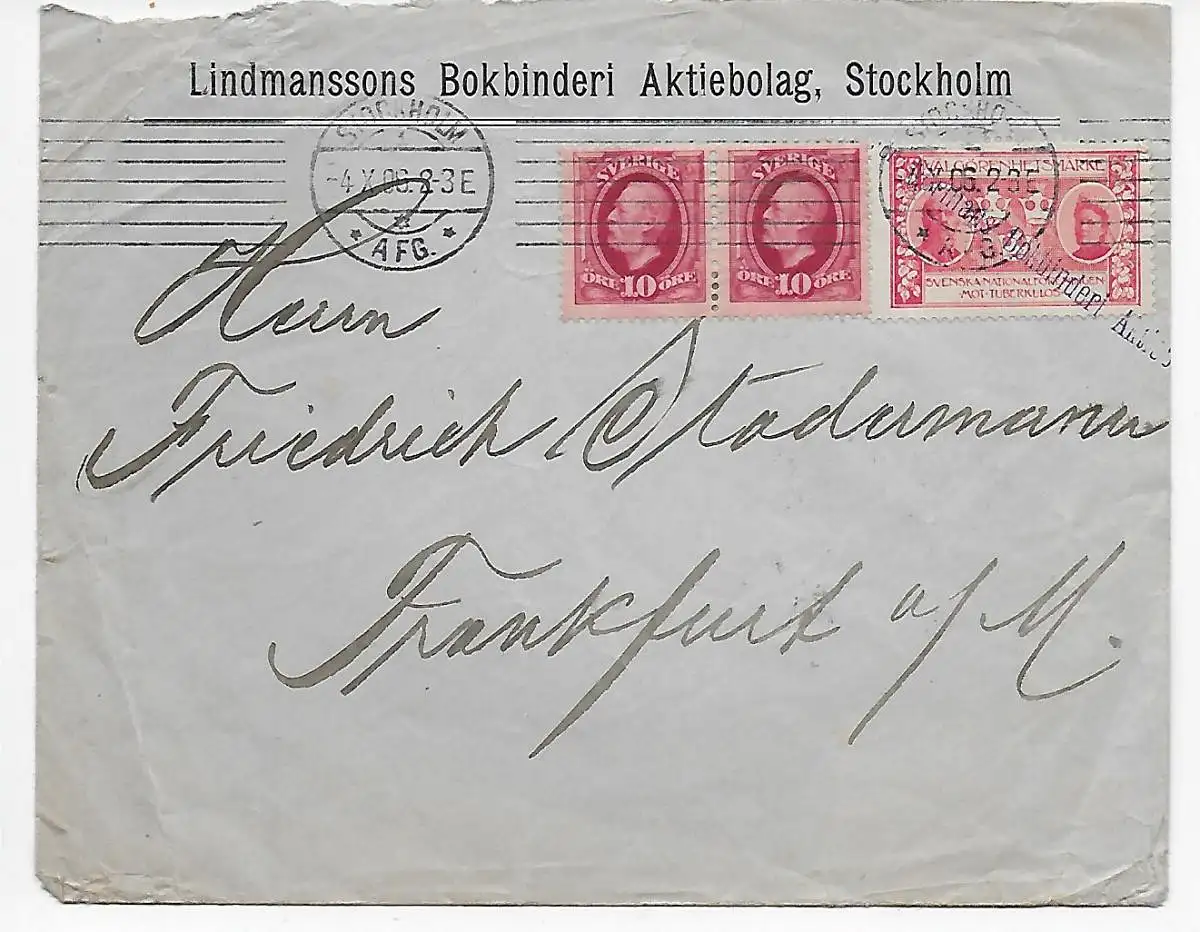 Lindmanssons Bokbinderi Aktiebolag, Stockholm
STOCKHOLM
-4.X.06.2-3E
AFG.
SVERIGE
ÖRE 10 ÖRE
SVERIGE
ÖRE 10 ÖRE
-4.X.06.2-3E
VÄLGÖRENHETSMÄRKE
SVENSKA NATIONALFÖRENINGEN
MOT TUBERKULOS
Bokbinderi
Herrn
Friedrich Stadermann
Frankfurt a/M.